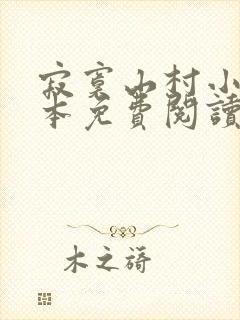 寂寞山村小
本免費閱讀
木之